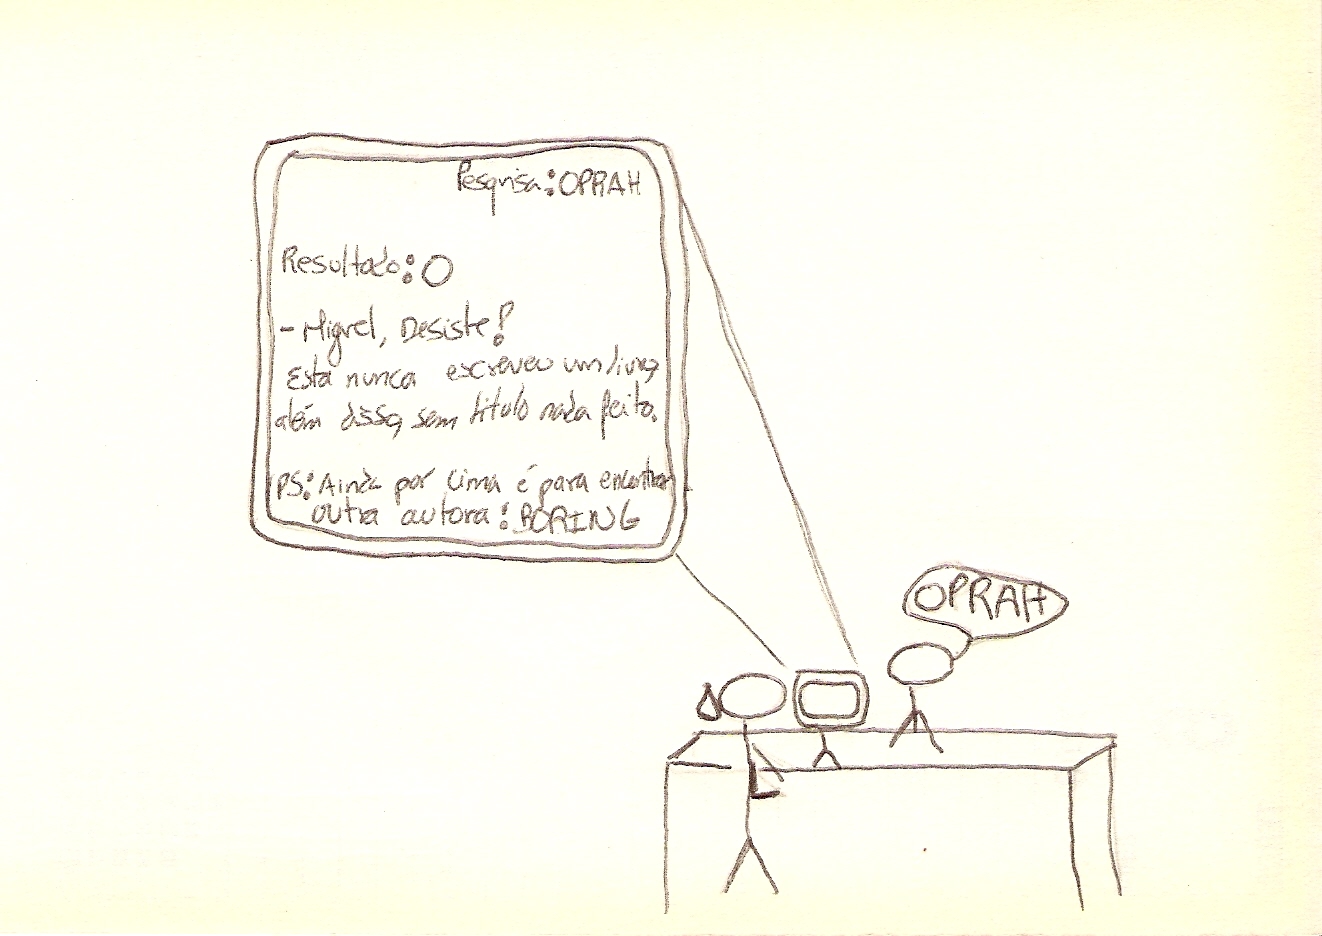 Pesquisa: OPRAH
Resultado: 0
- Miguel, Desiste!
Esta nunca escreveu um livro,
além disso, sem título nada feito.
PS: Ainda por cima é para encontrar
outra autora: BORING
OPRAH